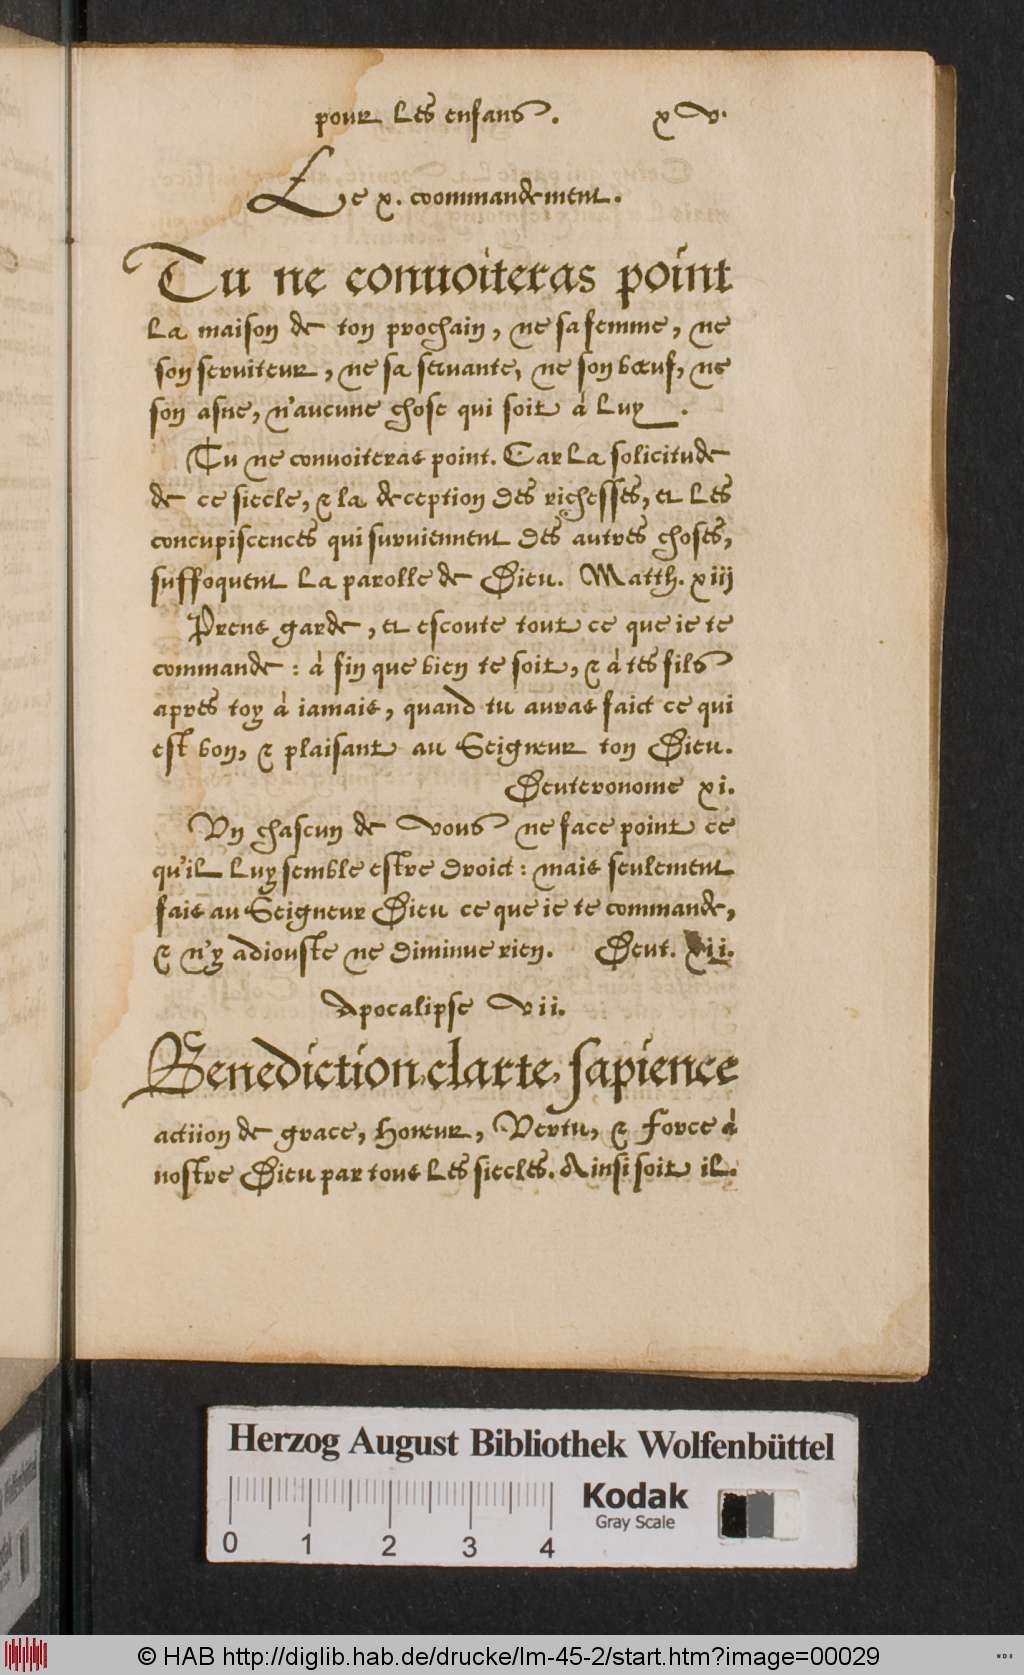 pour les enfans. xv.
Le x. coommandement.
Tu ne conuoiteras point
la maison de ton prochain, ne sa femme, ne
son seruiteur, ne sa seruante, ne son bœuf, ne
son asne, n'aucune chose qui soit à luy.
Tu ne conuoiteras point. Car la solicitude
de ce siecle, & la deception des richesses, et les
concupiscences qui suruiennent des autres choses,
suffoquent la parolle de Dieu. Matth. xiij
Prens garde, et escoute tout ce que ie te
commande: à fin que bien te soit, & à tes fils
apres toy à iamais, quand tu auras faict ce qui
est bon, & plaisant au Seigneur ton Dieu.
Deuteronome xi.
Vn chascun de vous ne face point ce
qu'il luy semble estre droict: mais seulement
fais au Seigneur Dieu ce que ie te commande,
& n'y adiouste ne diminue rien. Deut. xii.
Apocalipse vii.
Benediction, clarte, sapience
actiion de grace, honeur, Vertu, & force à
nostre Dieu par tous les siecles. Ainsi soit il.
Herzog August Bibliothek Wolfenbüttel
0 1 2 3 4
Kodak
Gray Scale
© HAB http://diglib.hab.de/drucke/lm-45-2/start.htm?image=00029